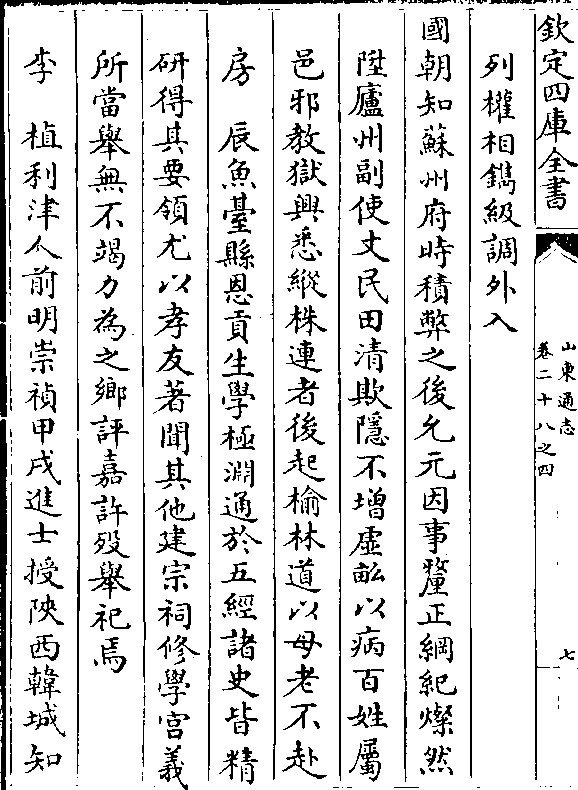 欽定四庫全書
山東通志
卷二十八之四
七
列權相鐫級調外入
國朝知蘇州府時積弊之後允元因事釐正綱紀燦然
陞廬州副使丈民田清欺隱不增虛畝以病百姓屬
邑邪教獄興悉縱株連者後起榆林道以母老不赴
房 辰魚臺縣恩貢生學極淵通於五經諸史皆精
研得其要領尤以孝友著聞其他建宗祠修學宮義
所當舉無不竭力為之鄉評嘉許歿舉祀焉
李 植利津人前明崇禎甲戌進士授陜西韓城知